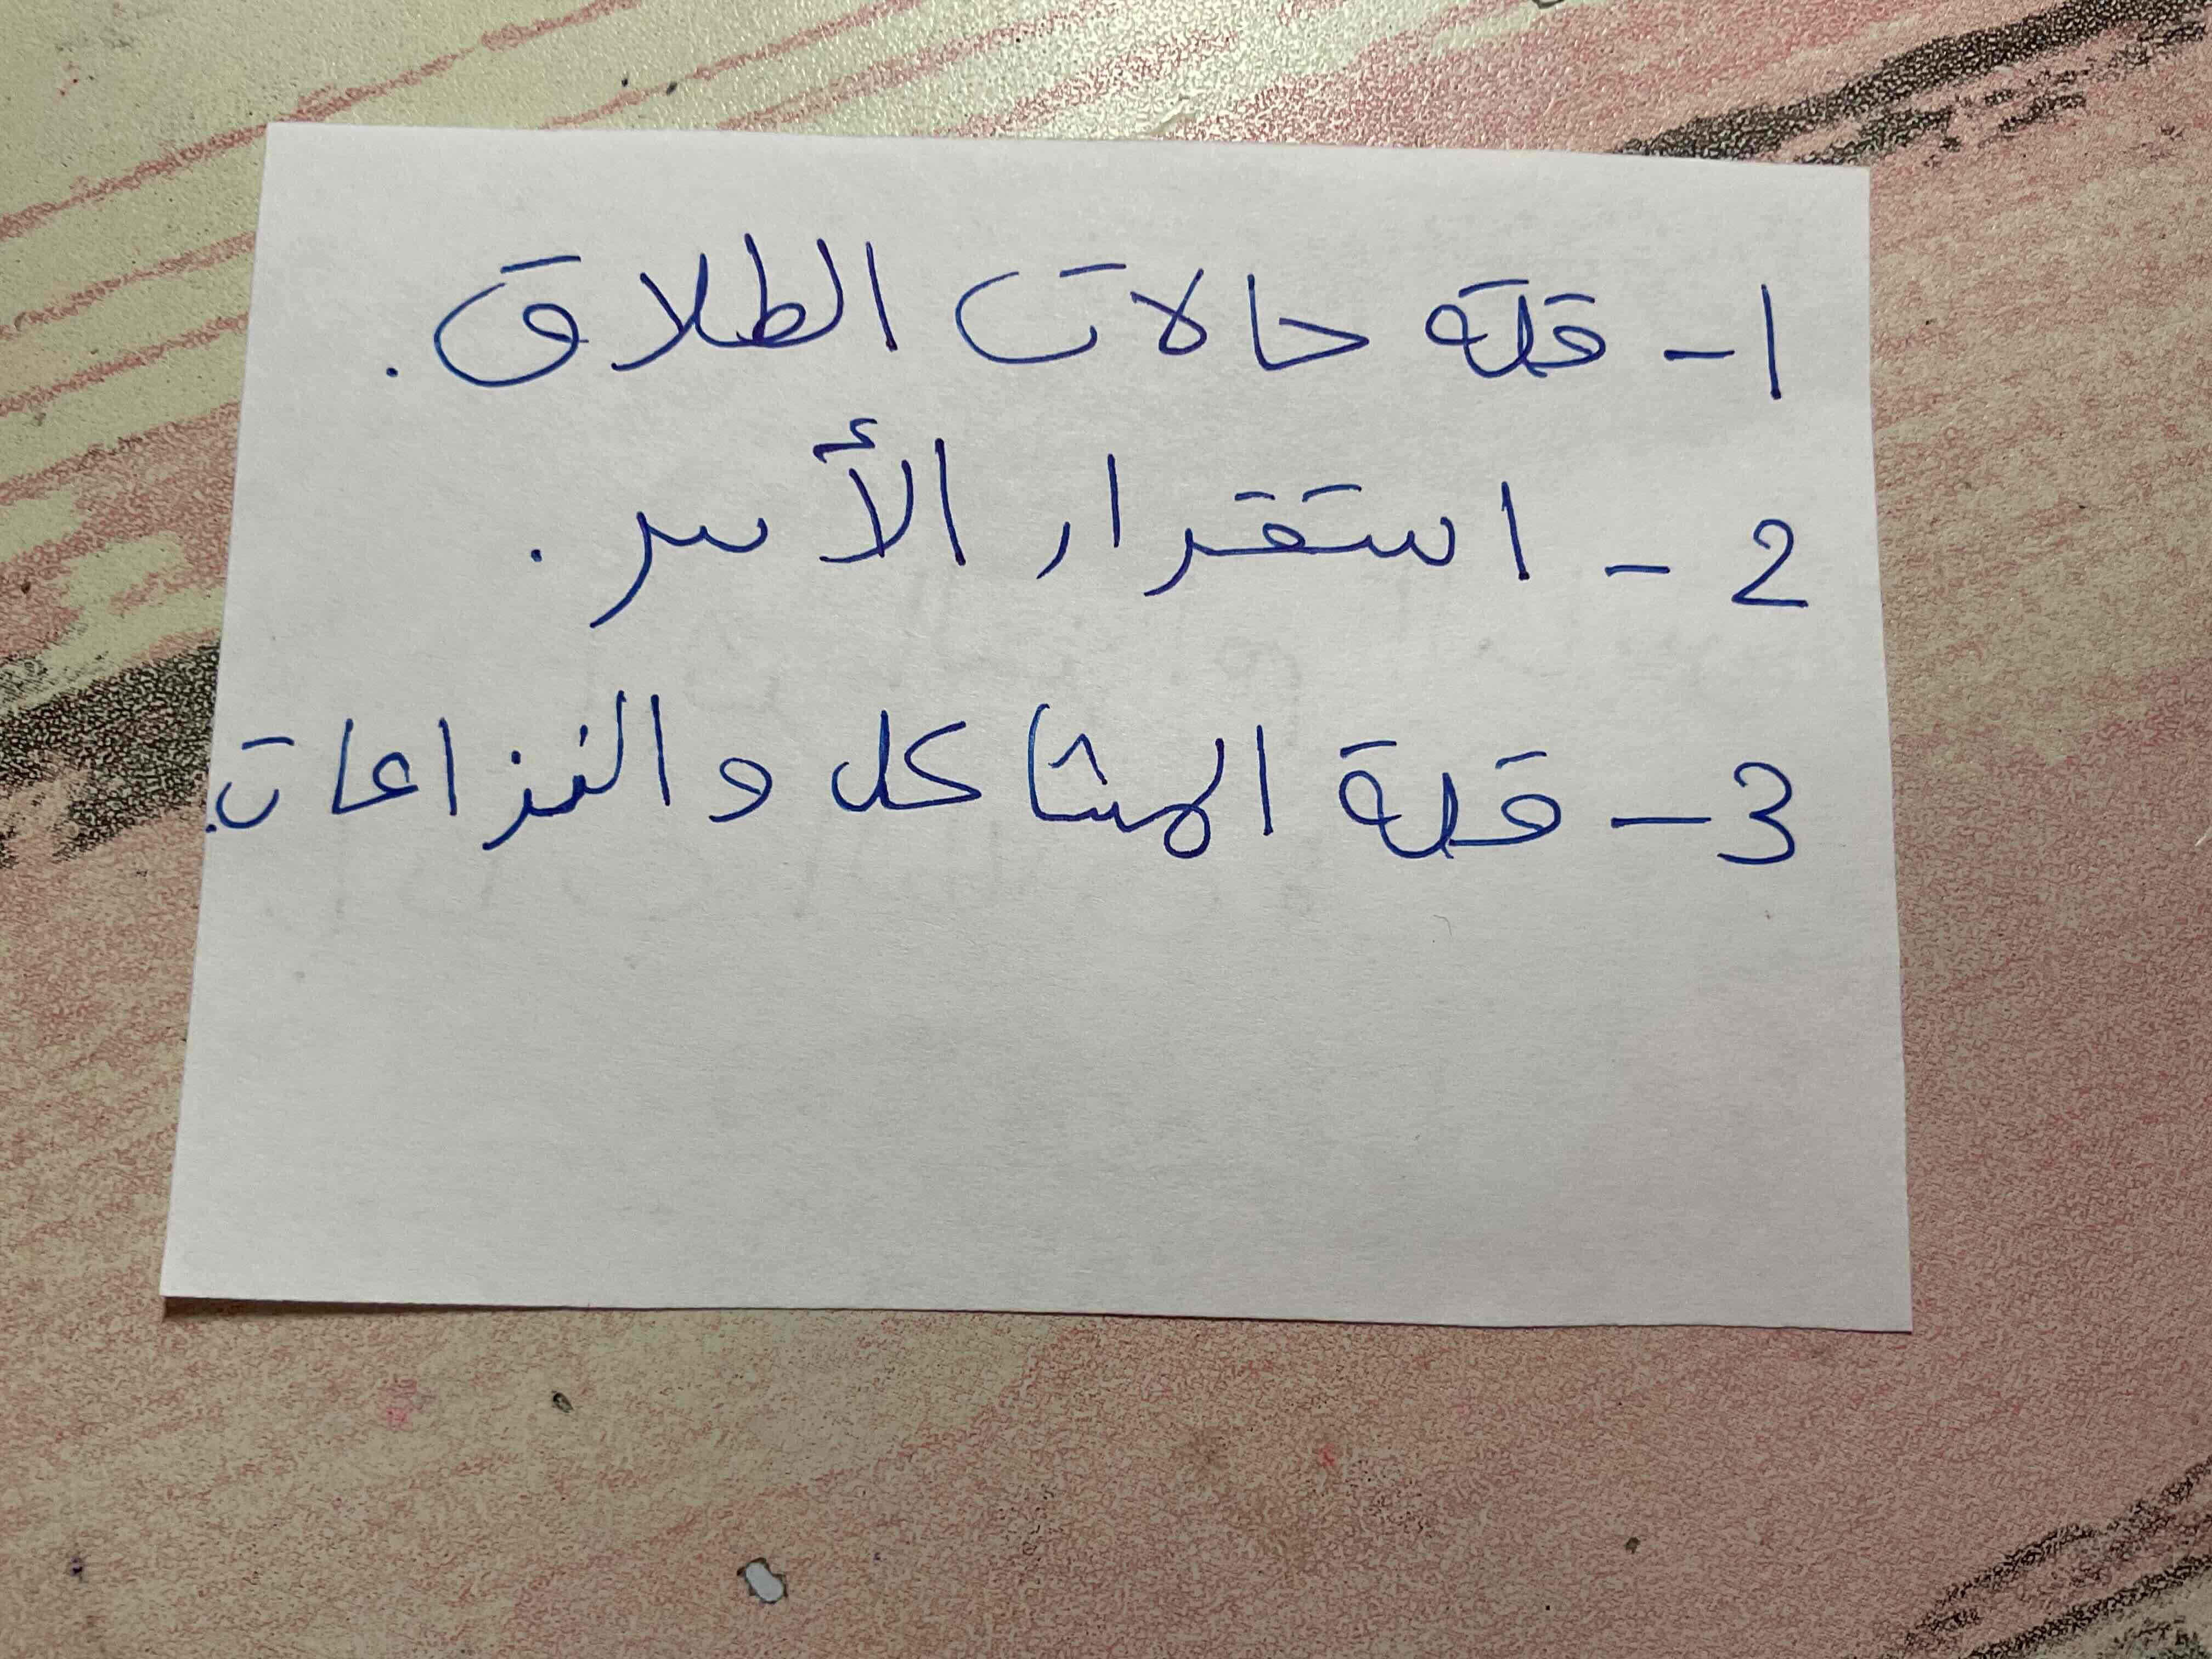 1- قلة حالات الطلاق.
2- استقرار الأسر.
3- قلة المشاكل والنزاعات.